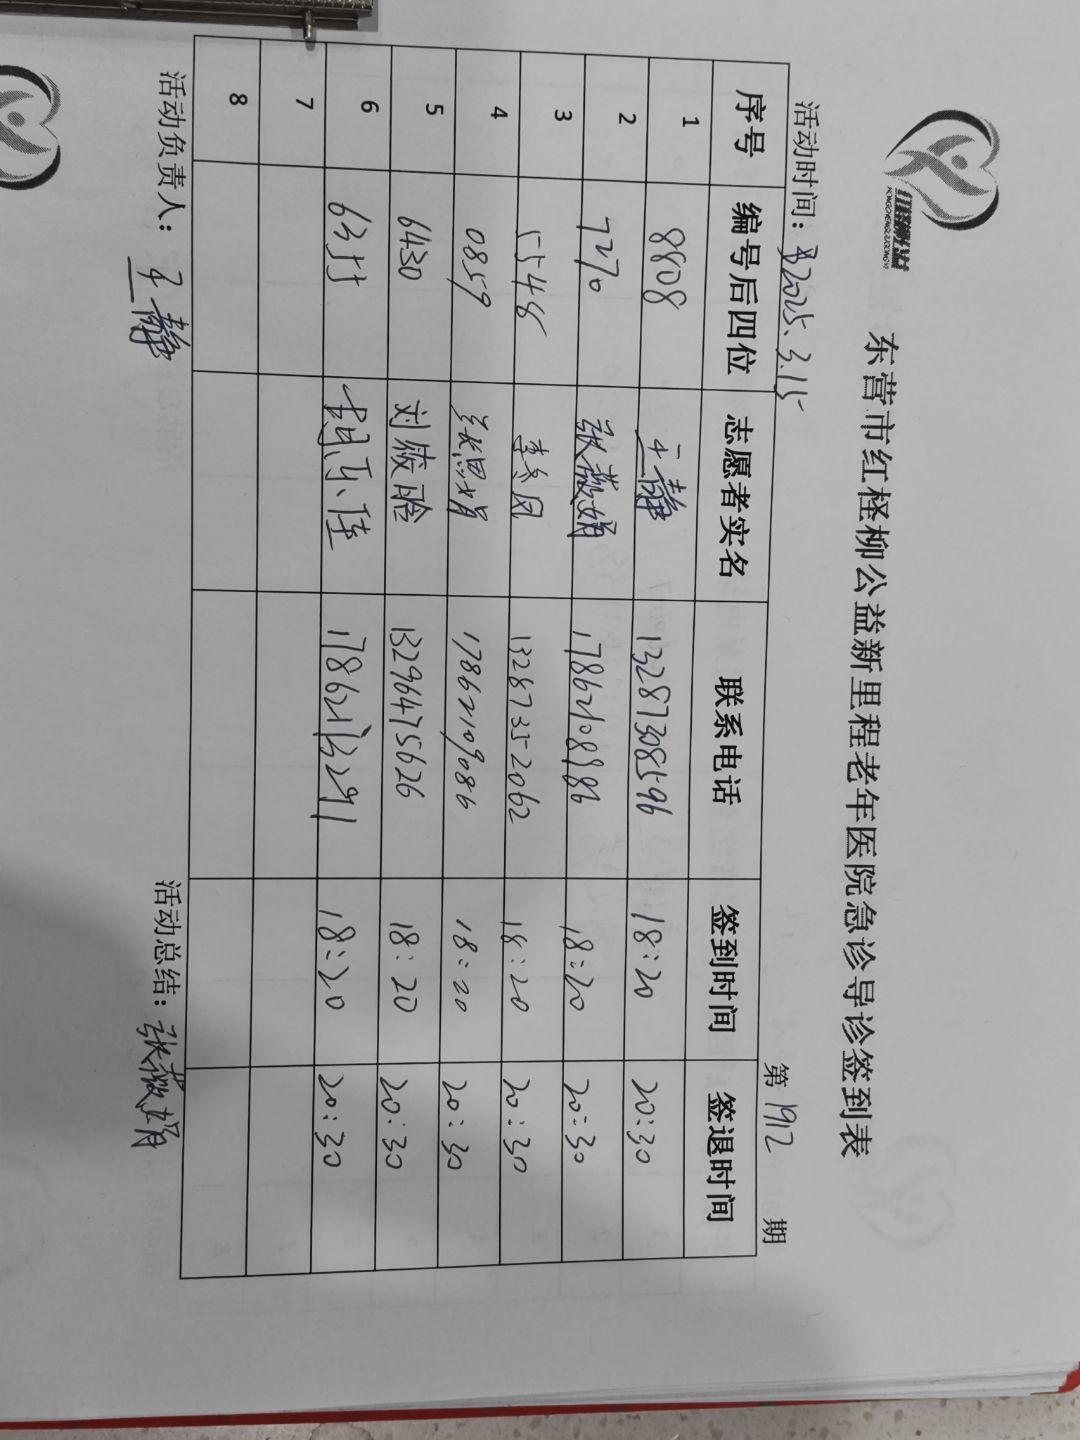 红柽柳公益
HONGCHENGLIUGONGYI
东营市红柽柳公益新里程老年医院急诊导诊签到表
活动时间：2025.3.15 第1912期
序号 编号后四位 志愿者实名 联系电话 签到时间 签退时间
1 8808 王静 13287308596 18:20 20:30
2 7270 张薇娟 17862108986 18:20 20:30
3 5548 李冬凤 13287352062 18:20 20:30
4 0859 17862109086 18:20 20:30
5 6430 刘筱晗 13296475626 18:20 20:30
6 6355 胡乐佳 18:20 20:30
7
8
活动负责人：王静 活动总结：张薇娟